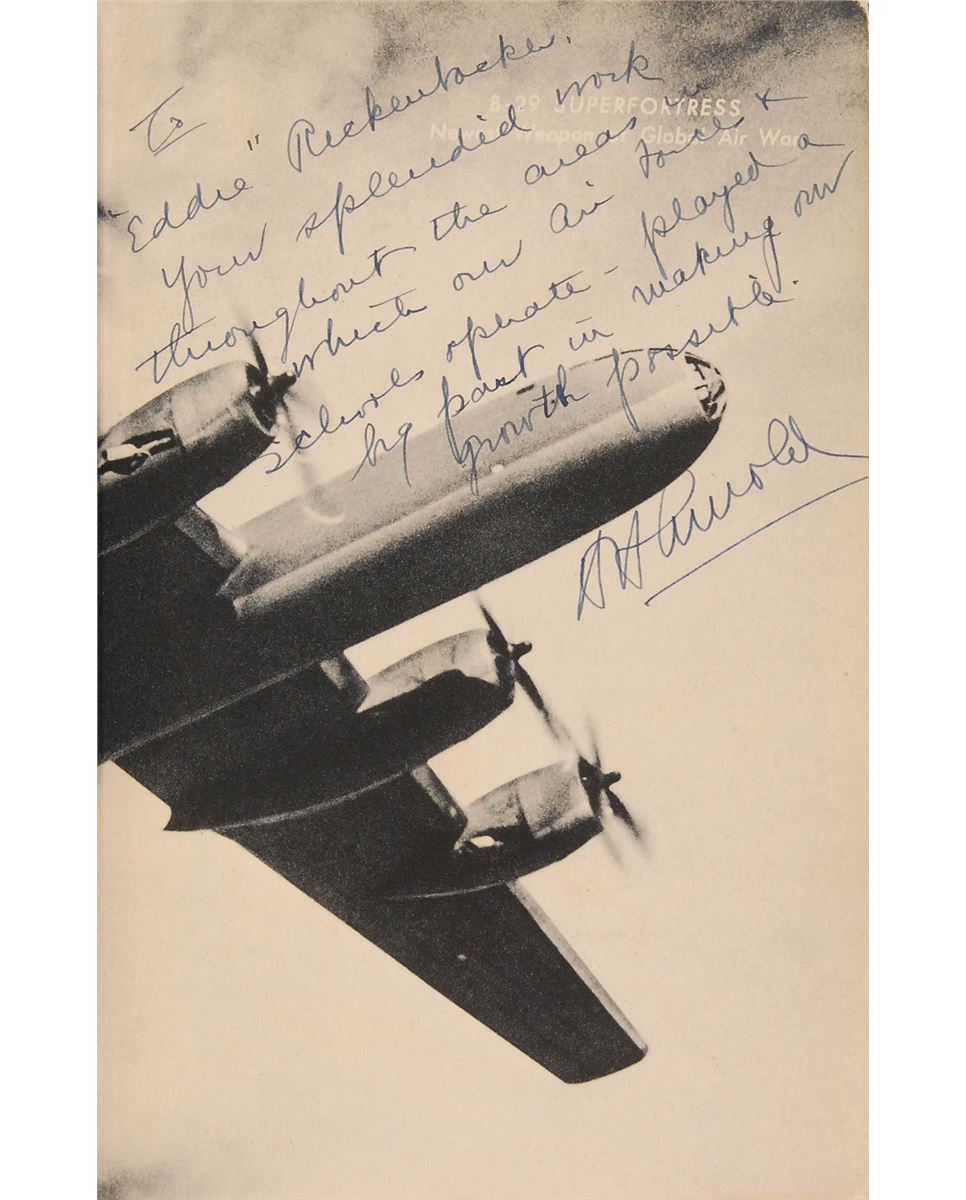 B-29 SUPERFORTRESS
Weapon of Global Air War
To
"Eddie" Rickenbacker.
Your splendid work
throughout the areas in
which our Air Force &
schools operate - played a
big part in making our
growth possible.
HH Arnold